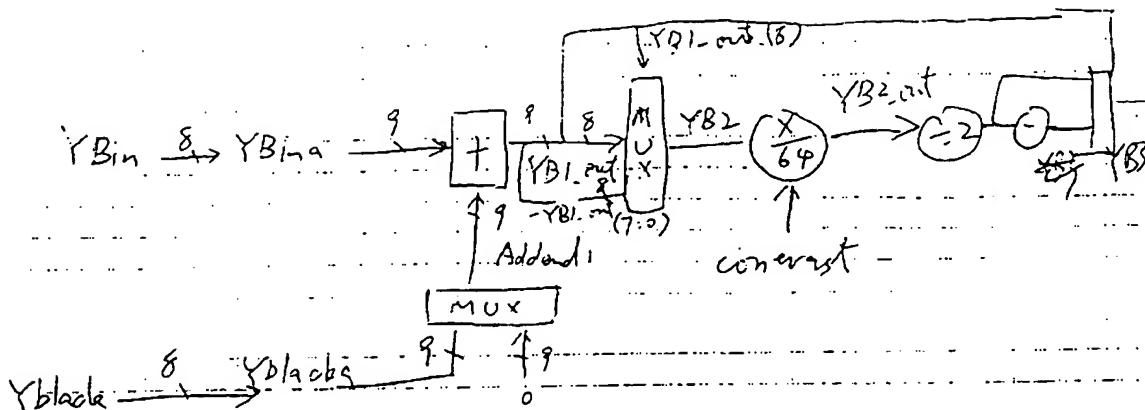 YB1_out (8)
YBin 8 YBina 9 + 9 8 MUX YB2 X/64 YB2_out ÷2 - YB3
YB1_out
-YB1_out 8
(7:0)
9
Addend1
contrast
MUX
Yblack 8 Yblacka 9 9
0